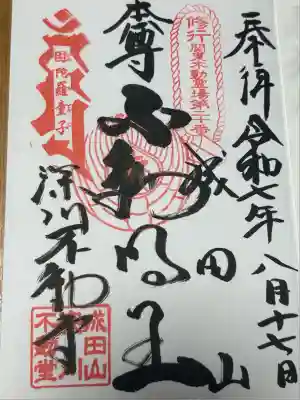 奉拝 令和七年 八月十七日
修行
関東不動霊場第二十番
成田山
本尊 不動明王
因陀羅童子
深川不動堂
成田山
深川
不動堂